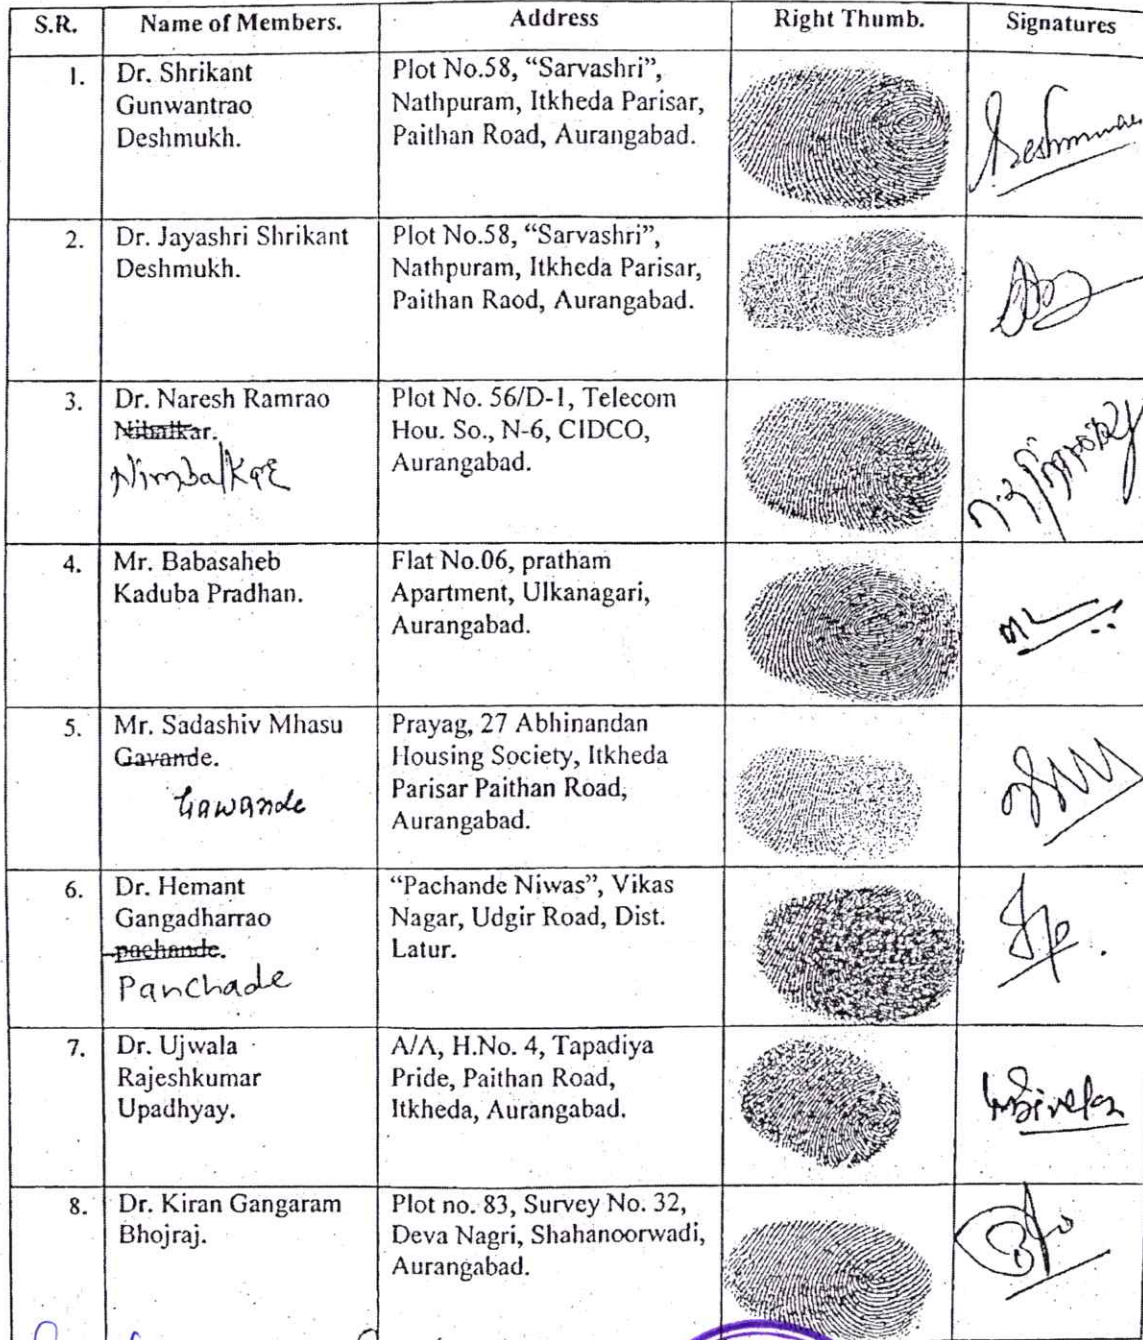 S.R. Name of Members. Address Right Thumb. Signatures
1. Dr. Shrikant
Gunwantrao
Deshmukh.
Plot No.58, “Sarvashri”,
Nathpuram, Itkheda Parisar,
Paithan Road, Aurangabad.
2. Dr. Jayashri Shrikant
Deshmukh.
Plot No.58, “Sarvashri”,
Nathpuram, Itkheda Parisar,
Paithan Raod, Aurangabad.
3. Dr. Naresh Ramrao
Nibalkar.
Nimbalkar
Plot No. 56/D-1, Telecom
Hou. So., N-6, CIDCO,
Aurangabad.
4. Mr. Babasaheb
Kaduba Pradhan.
Flat No.06, pratham
Apartment, Ulkanagari,
Aurangabad.
5. Mr. Sadashiv Mhasu
Gavande.
Gawande
Prayag, 27 Abhinandan
Housing Society, Itkheda
Parisar Paithan Road,
Aurangabad.
6. Dr. Hemant
Gangadharrao
pachande.
Panchade
“Pachande Niwas”, Vikas
Nagar, Udgir Road, Dist.
Latur.
7. Dr. Ujwala
Rajeshkumar
Upadhyay.
A/A, H.No. 4, Tapadiya
Pride, Paithan Road,
Itkheda, Aurangabad.
8. Dr. Kiran Gangaram
Bhojraj.
Plot no. 83, Survey No. 32,
Deva Nagri, Shahanoorwadi,
Aurangabad.